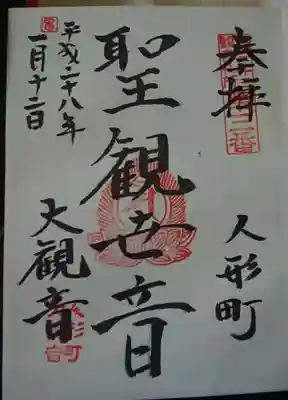 奉拝
人形町
聖王観世音
大観音
平成二十八年
一月十二日